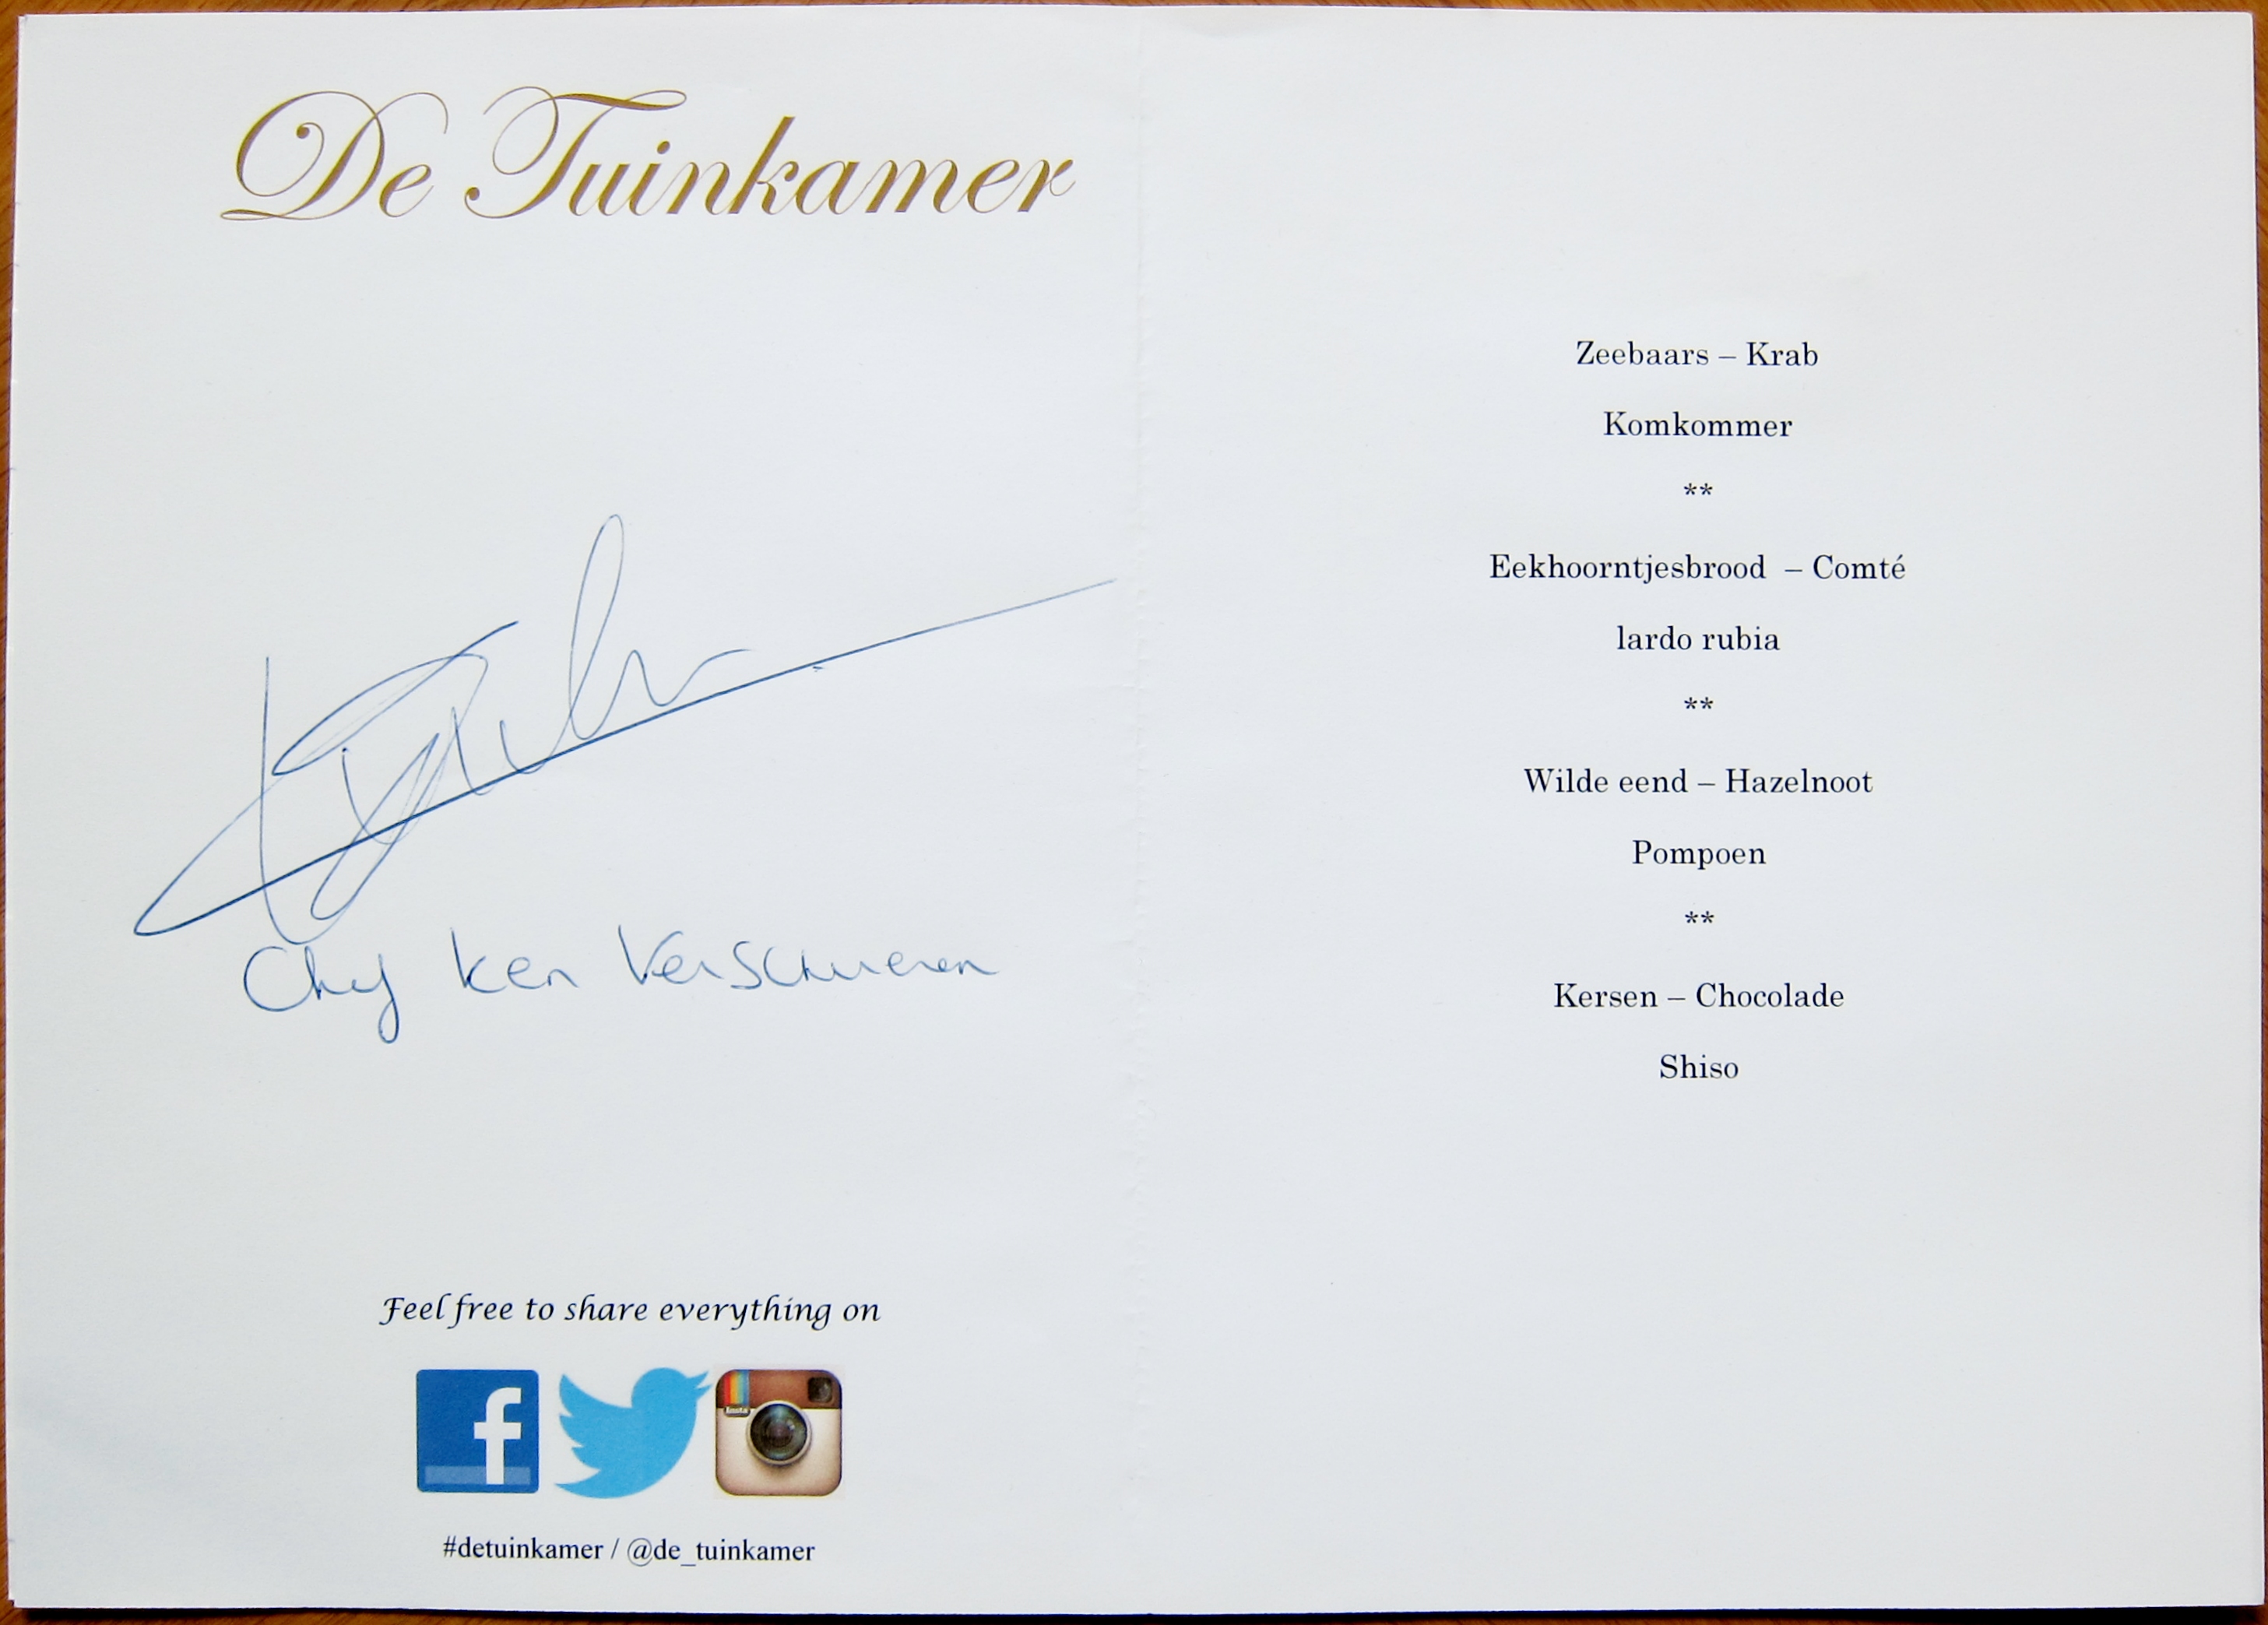 De Tuinkamer
Chef Ken Verschueren
Feel free to share everything on
Insta
#detuinkamer / @de_tuinkamer
Zeebaars – Krab
Komkommer
**
Eekhoorntjesbrood – Comté
lardo rubia
**
Wilde eend – Hazelnoot
Pompoen
**
Kersen – Chocolade
Shiso